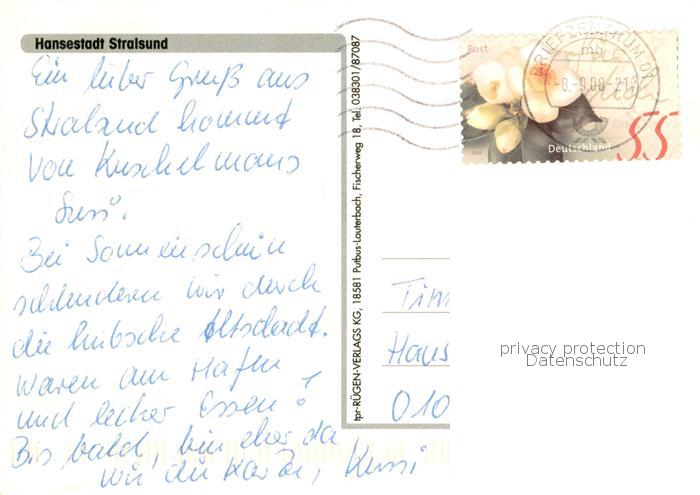 Hansestadt Stralsund
Ein lieber Gruß aus
Stralsund kommt
von Kuschelmaus
Susi.
Bei Sonnenschein
schlendern wir durch
die hübsche Altstadt.
Waren am Hafen
und lecker Essen!
Bis bald, bin eher da
wie die Karte,
tpr-RÜGEN-VERLAGS KG, 18581 Putbus-Lauterbach, Fischerweg 18, Tel. 038301/87087
Post
BRIEFZENTRUM
mb
-8.-9.08-21
Deutschland
55
Haus
010
privacy protection
Datenschutz